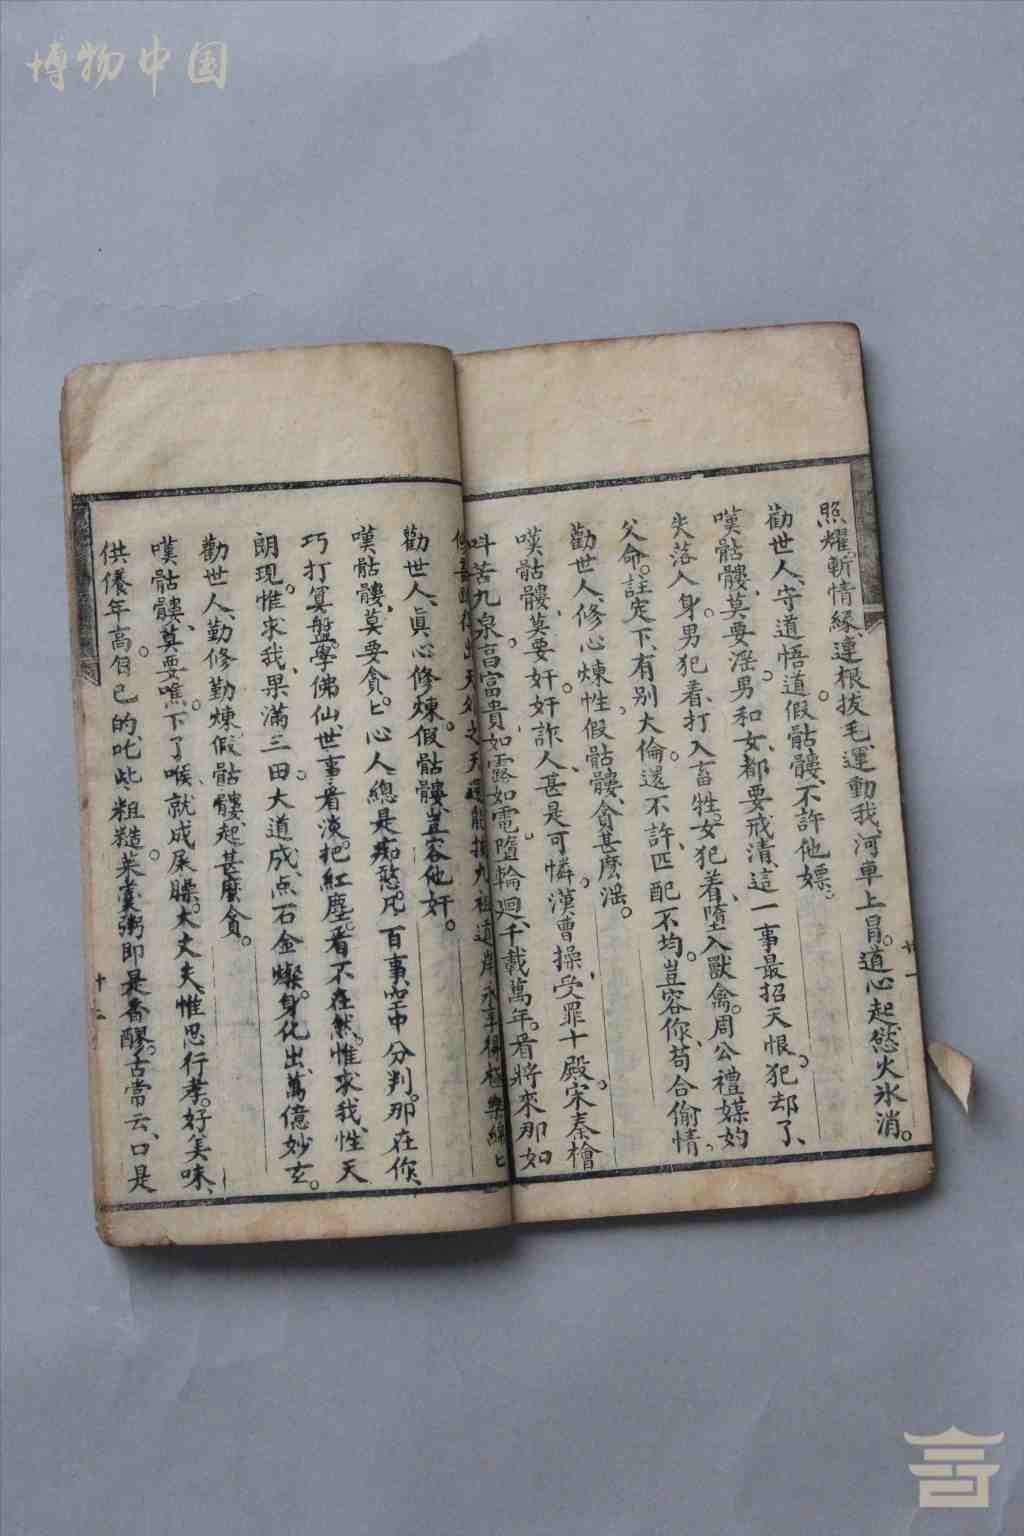 博物中国
照耀斬情緣連根拔毛運動我河車上冒。道心起慾火氷消。
勸世人、守道悟道。假骷髏不許他嫖。
嘆骷髏、莫要淫。男和女、都要戒清、這一事最招天恨。犯却了、
失落人身。男犯着、打入畜牲。女犯着、墮入獸禽。周公禮媒妁
父命。註定下、有別大倫。還不許、匹配不均。豈容你、苟合偷情。
勸世人、修心煉性。假骷髏、貪甚麼淫。
嘆骷髏、莫要奸。奸詐人、甚是可憐。漢曹操、受罪十殿。宋秦檜
呌苦九泉。富貴如露如電。墮輪廻、千載萬年。看將來那如
勸世人、眞心修煉。假骷髏、豈容他奸。
嘆骷髏、莫要貪。匕心人、總是痴憨。凡百事、空中分判。那在你、
巧打算盤。學佛仙、世事看淡。把紅塵、看不在然。惟求我、性天
朗現。惟求我、果滿三田。大道成、点石金燦。身化出、萬億妙玄。
勸世人、勤修勤煉。假骷髏、起甚麼貪。
嘆骷髏、莫要噍。下了喉、就成屎臊。大丈夫、惟思行孝。好美味、
供養年高。自己的、吃些粗糙。菜羹粥即是香醪。古常云、口是
十二